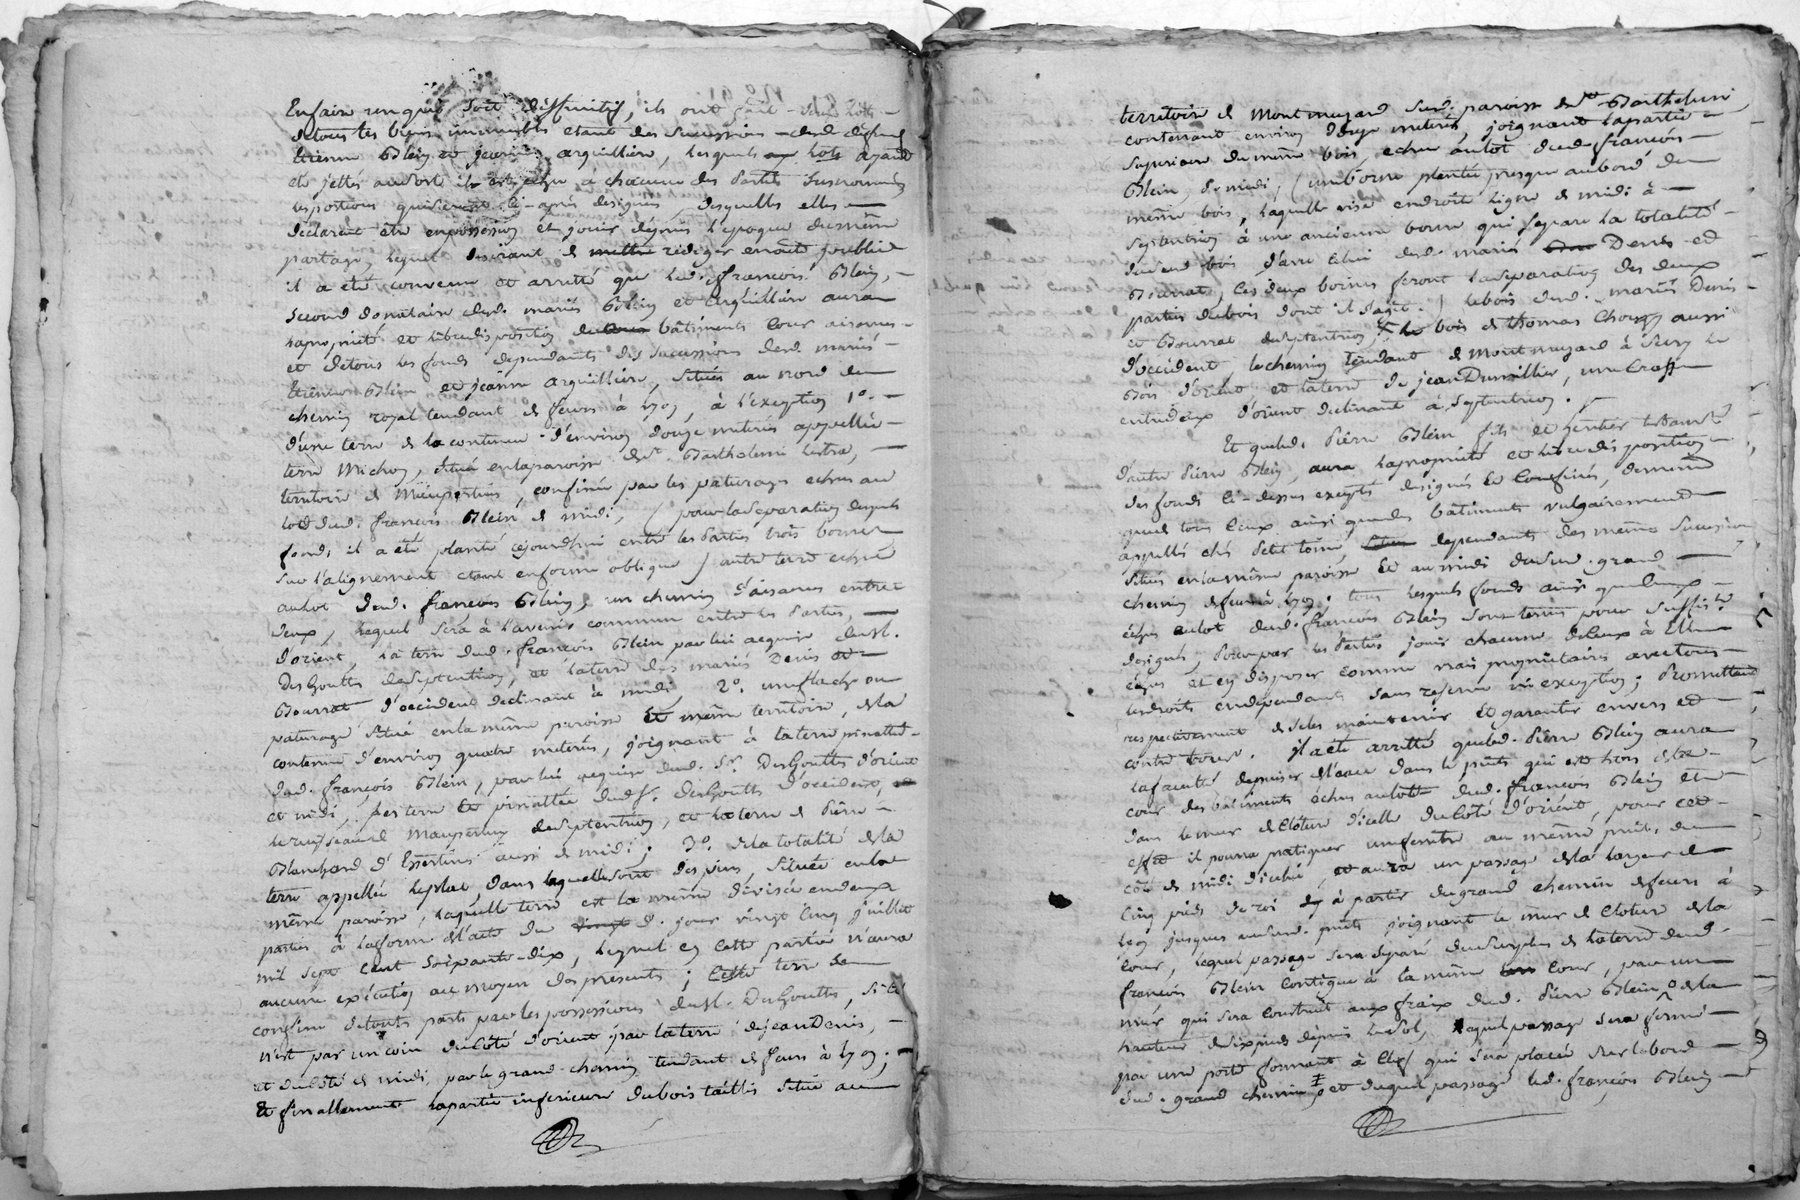 Enfaire un qui soit déffinitif, ils ont fait deux lots
de tous les biens immeubles étant des successions desd. défunts
Etienne Blein et jeanne arquillière, lesquels lots ayant
été jettés au sort il est échu à chacune des parties susnommées
les portions qui seront ci-après désignées, desquelles elles
déclarent être en possession et jouir dépuis l'époque du même
partage, lequel désirant de mettre rédiger en acte public
il a été convenu et arrêté que led. françois Blein,
second donataire desd. mariés Blein et arquillière aura
la propriété et libre disposition bâtiments cour aisances
et de tous les fonds dépendants des successions desd. mariés
Etienne Blein et jeanne arquillière, situés au nord du
chemin royal tendant de feurs à lyon, à l'exception 1°.
d'une terre de la contenue d'environ douze meterées appellée
terre Michon, située en la paroisse de St. Barthelemi lestra,
territoire de Maupertuis, confinée par les paturages échus au
lot dud. françois Blein de midi, (pour la séparation desquels
fonds il a été planté cejourdhui entre les parties trois bornes
sur l'alignement étant en forme oblique) autre terre échue
au lot dud. françois Blein, un chemin d'aisances entre
deux, lequel sera à l'avenir commun entre les parties,
d'orient, la terre dud. françois Blein par lui acquise du Sr.
DesGouttes de septentrion, et la terre des mariés Denis et
Bourrat d'occident declinant à midi 2°. une flache ou
paturage situé en la même paroisse et même territoire, de la
contenue d'environ quatre meterées, joignant à la terre pinattée
dud. françois Blein, par lui acquise dud. Sr. DesGouttes d'orient
et midi, les terre et pinattée dud. Sr. desGouttes d'occident,
le ruisseau de Maupertuis de septentrion, et la terre de Pierre
Blanchard d'Essertines aussi de midi; 3°. de la totalité de la
terre appellée leplat, dans laquelle sont des pins, située en la
même paroisse, laquelle terre est la même divisée en deux
parties à la forme de l'acte du vingt d. jour vingt cinq juillet
mil sept cent soixante-dix, lequel en cette partie n'aura
aucune exécution au moyen des présentes; cette terre se
confine de toutes parts par les possessions du Sr. DesGouttes, si ce
n'est par un coin du côté d'orient par la terre de jean Denis,
et du côté de midi, par le grand chemin tendant de feurs à lyon;
Et finallement la partie inférieure du bois taillis situé au
territoire de Montmuzard susd. paroisse de St. Barthelemi,
contenant environ douze meterées, joignant la partie
supérieure du même bois, échue au lot dud. françois
Blein, de midi, (une borne plantée presque au bord du
même bois, laquelle vise en droite ligne de midi à
septentrion à une ancienne borne qui sépare la totalité
dud. bois d'avec celui desd. mariés Denis et
Bourrat, ces deux bornes feront la séparation des deux
parties du bois dont il s'agit.) le bois desd. mariés Denis
et Bourrat de septentrion, le bois de thomas aussi
d'occident, le chemin tendant de Montmuzard à Sury le
Bois d'orient et la terre de jean Dumillier, une
entredeux d'orient declinant à septentrion.
Et que led. Pierre Blein fils et héritier
d'autre Pierre Blein, aura la propriété et libre disposition
des fonds ci-dessus exceptés désignés et confinés, demême
que de tous ceux ainsi que des bâtiments vulgairement
appellés chés Petit toine, dépendants des mêmes successions
situés en la même paroisse et au midi du susd. grand
chemin de feurs à lyon; tous lesquels fonds ainsi que ceux
échus au lot dud. françois Blein sont tenus pour suffist.
désignés, pour par les parties jouir chacune de ceux à elle
échus et en disposer comme vrais propriétaires avec tous
les droits en dépendants sans réserve ni exception; promettant
respectivement de se les maintenir et garantir envers et
contre tous. Il a été arretté que led. Pierre Blein aura
la faculté de puiser de l'eau dans le puits qui est hors de la
cour des bâtiments échus au lot dud. françois Blein et
dans le mur de clôture d'icelle du côté d'orient, pour cet
effet il pourra pratiquer une fenêtre au même puits du
côté de midi d'icelui, et aura un passage de la largeur de
cinq pieds de roi à partir du grand chemin de feurs à
lyon jusques au susd. puits joignant le mur de cloture de la
cour, lequel passage sera séparé du surplus de la terre dud.
françois Blein contiguë à la même cour, par un
mur qui sera construit aux fraix dud. Pierre Blein, de la
hauteur de six pieds dépuis le sol, lequel passage sera fermé
par une porte fermant à clef qui sera placée sur le bord
dud. grand chemin, et duquel passage led. françois Blein